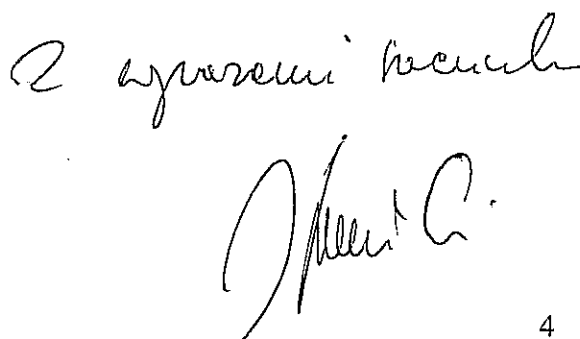 Z wyrazami szacunku
4